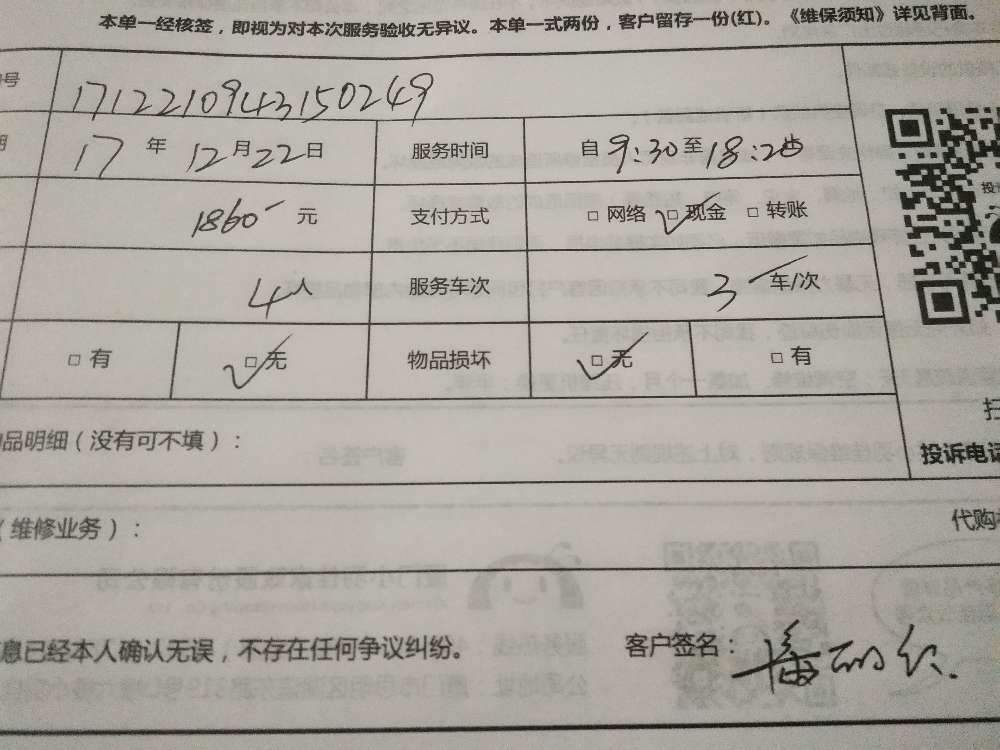 本单一经核签，即视为对本次服务验收无异议。本单一式两份，客户留存一份(红)。《维保须知》详见背面。
号 1712210943150249
17 年 12 月 22 日 服务时间 自 9:30 至 18:20
1860 元 支付方式 □ 网络 □ 现金 □ 转账
4 服务车次 3 车/次
□ 有 □ 无 物品损坏 □ 无 □ 有
品明细（没有可不填）：
投诉电话
（维修业务）：
代购
息已经本人确认无误，不存在任何争议纠纷。
客户签名：潘丽红